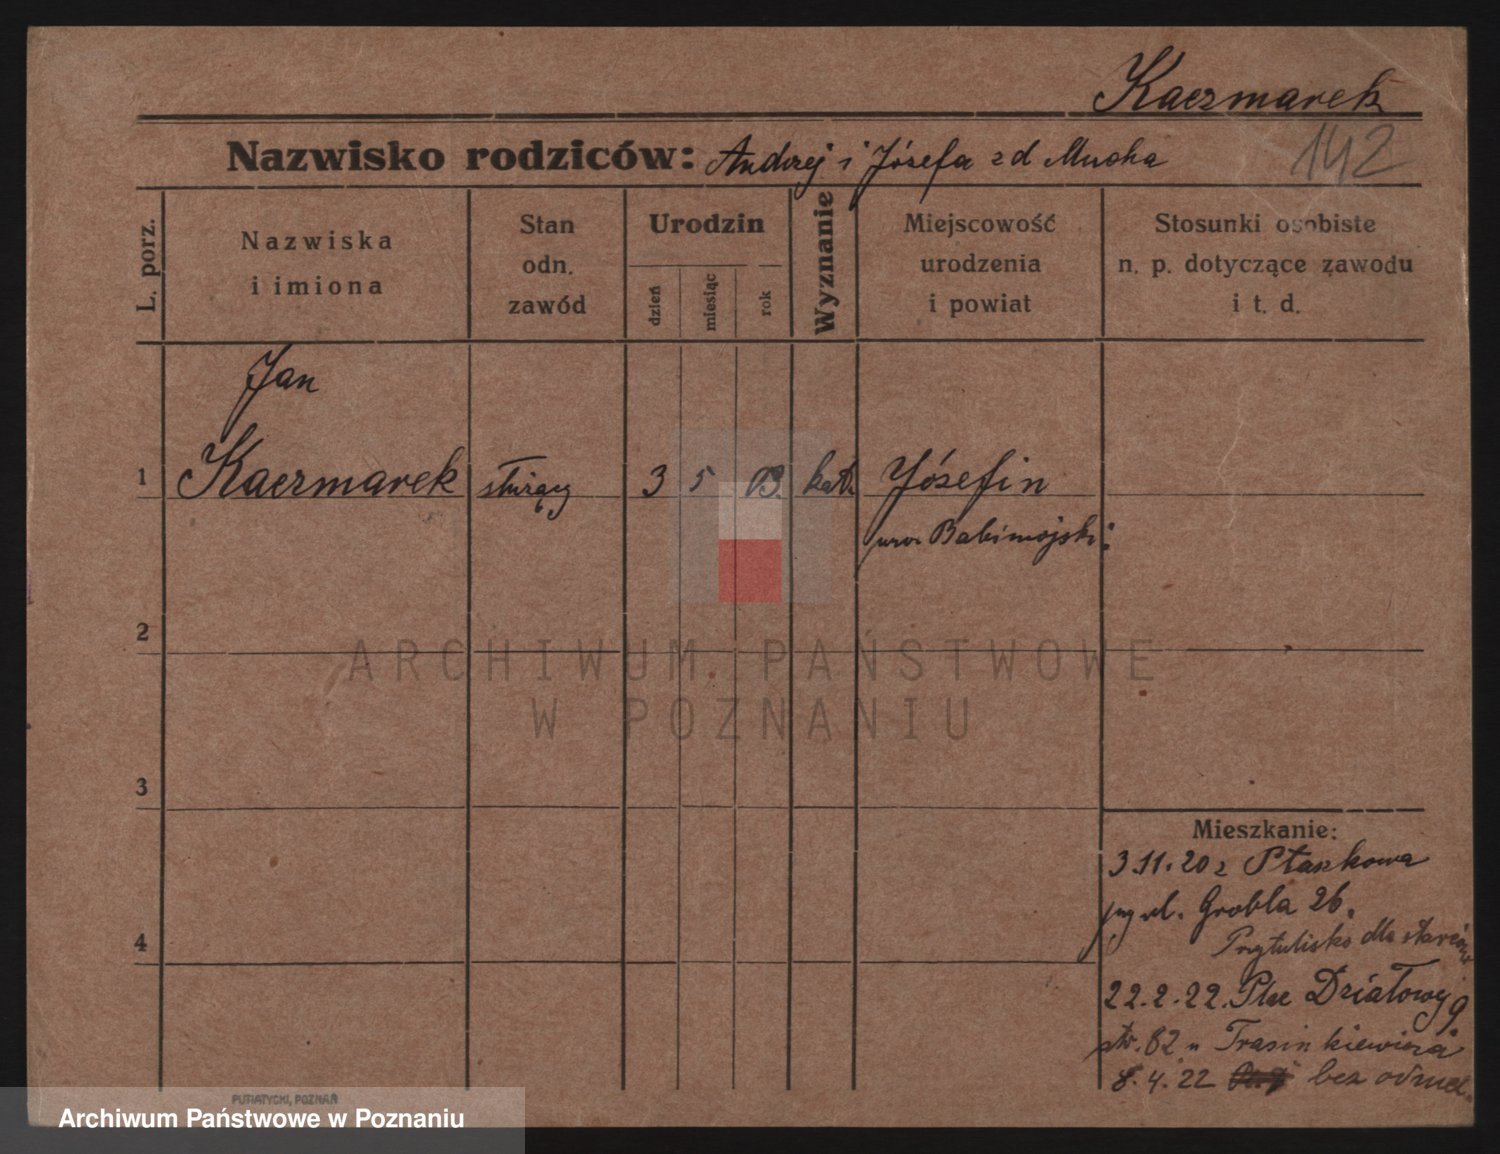 Kaczmarek
142
Nazwisko rodziców: Andrzej i Józefa z d Mucha
L. porz.
Nazwiska
i imiona
Stan
odn.
zawód
Urodzin
dzień
miesiąc
rok
Wyznanie
Miejscowość
urodzenia
i powiat
Stosunki osobiste
n. p. dotyczące zawodu
i t. d.
Jan
1 Kaczmarek służący 3 5 03 kat. Józefin
Babimojski
2
3
4
ARCHIWUM PAŃSTWOWE
W POZNANIU
Mieszkanie:
3.11.20 z Ptaszkowa
ul. Grobla 26.
Przytulisko dla starców
22.2.22. Plac Działowy 9
str. 82 u
8.4.22 bez odmel.
PUTIATYCKI, POZNAŃ
Archiwum Państwowe w Poznaniu